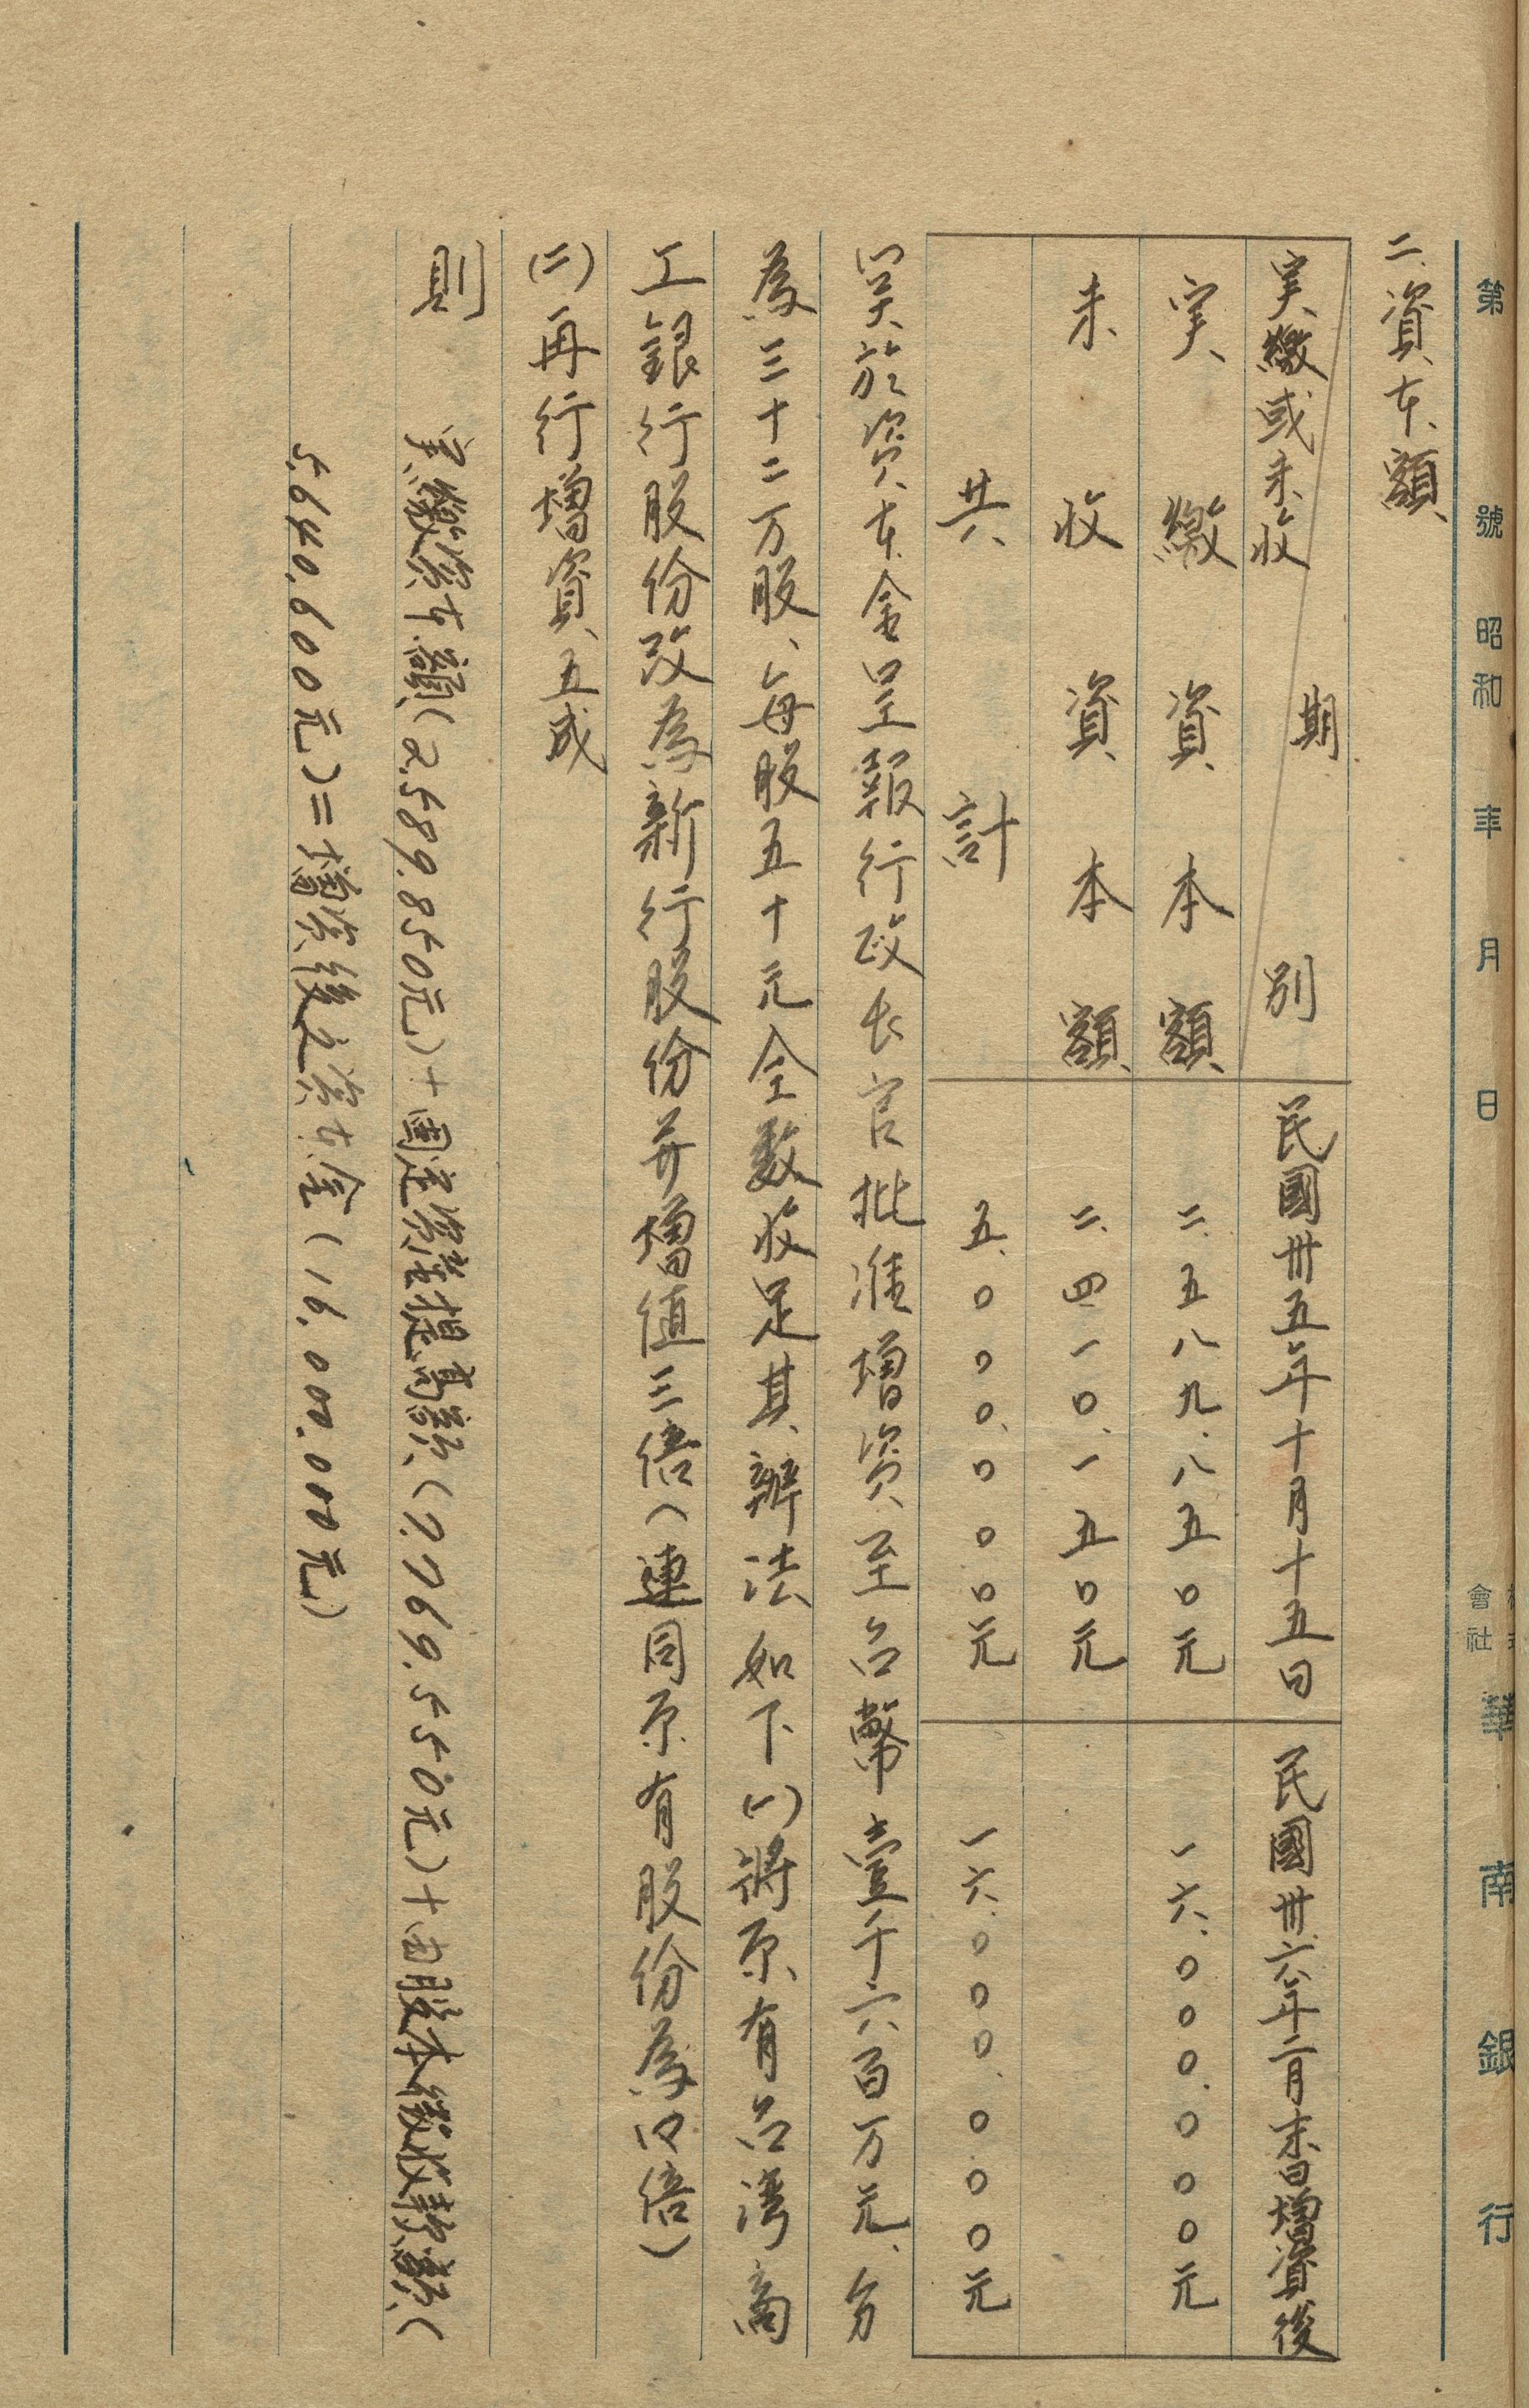 第 號 昭和 年 月 日 會社 華南銀行
二、資本額
期別
実繳或未收
民國卅五年十月十五日
民國卅六年二月末日增資後
実繳資本額
二.五八九.八五〇元
一六.〇〇〇.〇〇〇元
未收資本額
二.四一〇.一五〇元
共計
五.〇〇〇.〇〇〇元
一六.〇〇〇.〇〇〇元
関於資本金呈報行政长官批准增资至台幣壹千六百万元、分
為三十二万股、每股五十元全数收足其辦法如下(一)將原有台灣商
工銀行股份改為新行股份并增值三倍(連同原有股份為四倍)
(二)再行增資五成
則 実繳資本額(2.589.850元)+固定資產提高額(7.769.550元)+由股本繳收款額(
5.640.600元)=增資後之資本金(16.000.000元)